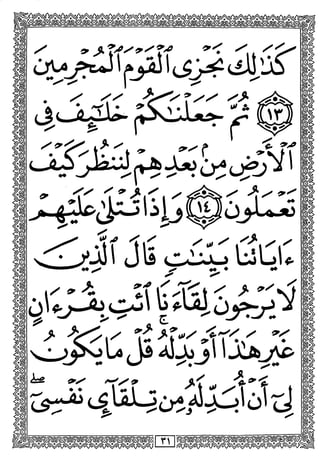 كَذَٰلِكَ نَجۡزِي ٱلۡقَوۡمَ ٱلۡمُجۡرِمِينَ
١٣ ثُمَّ جَعَلۡنَٰكُمۡ خَلَٰٓئِفَ فِي
ٱلۡأَرۡضِ مِنۢ بَعۡدِهِمۡ لِنَنظُرَ كَيۡفَ
تَعۡمَلُونَ ١٤ وَإِذَا تُتۡلَىٰ عَلَيۡهِمۡ
ءَايَاتُنَا بَيِّنَٰتٖ قَالَ ٱلَّذِينَ
لَا يَرۡجُونَ لِقَآءَنَا ٱئۡتِ بِقُرۡءَانٍ
غَيۡرِ هَٰذَآ أَوۡ بَدِّلۡهُۚ قُلۡ مَا يَكُونُ
لِيٓ أَنۡ أُبَدِّلَهُۥ مِن تِلۡقَآيِٕ نَفۡسِيٓۖ
٣١